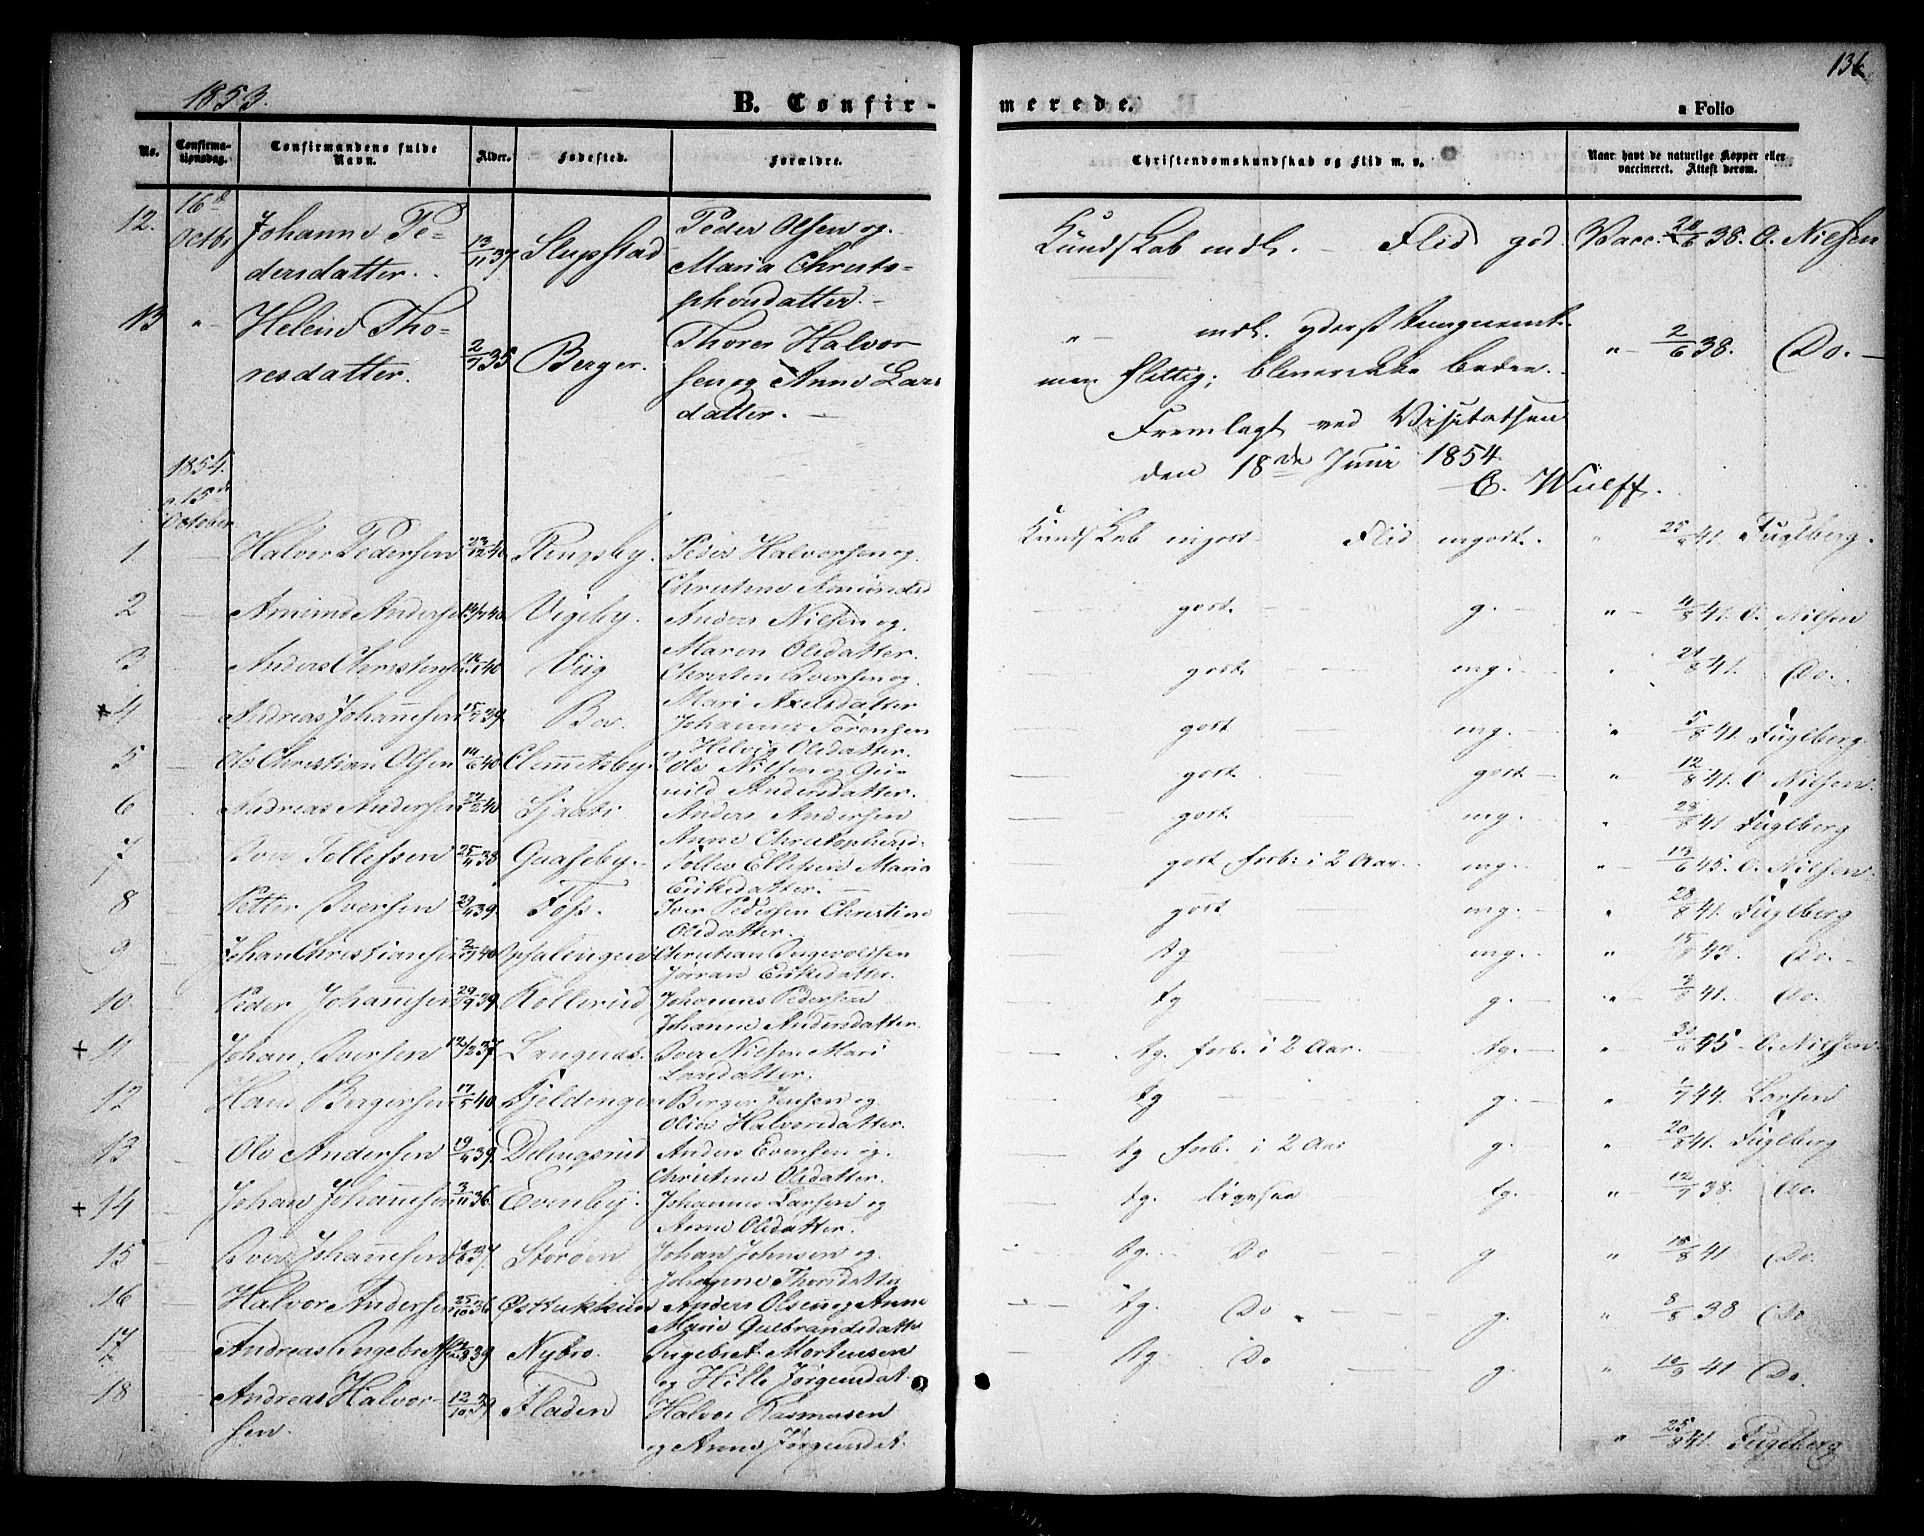 136
1853.
B. Confir-
merede.
a Folio
No.
Confirma-
tionsdag.
Confirmandens fulde
Navn.
Alder.
Fødested.
Forældre.
Christendomskundskab og Flid m. v.
Naar havt de naturlige Kopper eller
vaccineret. Attest derom.
12. 16de Octbr Johanne Pe-
dersdatter. 13/11 37 Slupstad Peder Olsen og
Maria Christo-
phersdatter. Kundskab mdl. - Flid god. Vacc. 38. O. Nilsen
13 " Helene Tho-
resdatter. 2/7 35 Berger. Thores Halvor
sen og Anne Lars
datter. mdl. yderst
men flittig; Beder. " 2/6 38. Do.
Fremlagt ved Visitatsen
den 18de Juni 1854
C. Wulff.
1854.
15de
October
1 Halvor Pedersen 23/12 40 Rengsby. Peder Halvorsen og
Christine Amunds Kundskab mgodt Flid mgodt. " 41. Fuglberg.
2 Amund Andersen Vigeby. Anders Nilsen og
Maren Olsdatter. godt g. " 41. O. Nilsen
3 Anders Christensen 40 Viig Christen Iversen og
Mari Axelsdatter godt mg. " 41. Do.
4 Andreas Johannesen 39 Bøe. Johannes Sørensen
og Helvig Olsdatter. godt mg. " 5/8 41. Fuglberg
5 Ole Christian Olsen 14/6 40 Clemmetsby Ole Nilsen og Gu-
nild Andersdatter. godt godt " 12/8 41. O. Nilsen
6 Andreas Andersen 40 Anders Andersen
Anne Christophersd. godt mg. " 28/8 41 Fuglberg
7 Iver Tollefsen 25/4 38 Gaaseby. Tollef Ellefsen Maria
Eriksdatter. godt forb: i 2 Aar. mg. " 13/6 45. O. Nilsen
8 Petter Iversen 29/4 39. Foss. Iver Pedersen Christine
Olsdatter. godt mg. " 28/8 41. Fuglberg
9 Johan Christiansen 40 Opsalengen Christian Ingevoldsen
Jøran Eriksdatter. tg mg. " 43. Do.
10. Peder Johannesen 29/9 39 Kollerud Johannes Pedersen
Johanne Andersdatter. tg g. " 41. Do.
11 Johan Iversen 12/12 37 Langnæs. Iver Nilsen Mari
Larsdatter. tg. forb. i 2 Aar. tg. " 45 O. Nilsen
12 Hans Bergersen 17/5 40 Fjeldengen Berger Jensen og
Oliva Halvorsdatter. tg g. " 1/7 44. Larsen
13 Ole Andersen 19/4 39. Delingsrud Anders Evensen og
Christine Olsdatter. tg forb. i 2 Aar g. " 20/8 41. Fuglberg
14 Johan Johannesen 3/11 36. Evenby. Johannes Larsen og
Anne Olsdatter. tg. ligesaa tg. " 12/7 38. Do.
15 Iver Johannesen 37. Storøen Johan Johnsen og
Johanne Thorsdatter tg. Do g " 18/8 41 Do.
16 Halvor Andersen 25/10 36 Anders Olsen og Anne
Marie Gulbrandsdatter tg. Do g. " 38 Do
17 Andreas Ingebretsen 39 Nybro. Ingebret Mortensen
og Hille Jørgensdat. tg Do g. " 10/9 41 Do.
18 Andreas Halvor-
sen. 12/10 39 Fladen Halvor Rasmusen
og Anne Jørgensdat. " 25/9 41. Fuglberg